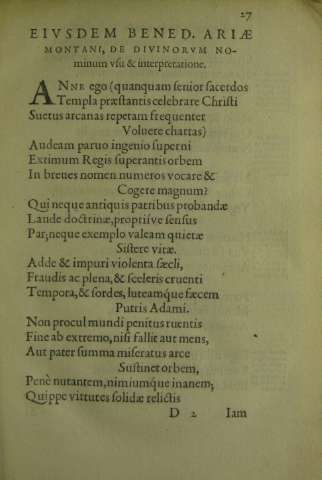 27
EIVSDEM BENED. ARIÆ
MONTANI, DE DIVINORVM NO-
minum vsu & interpretatione.
ANNE ego (quanquam senior sacerdos
Templa præstantis celebrare Christi
Suetus arcanas repetam frequenter
Voluere chartas)
Audeam paruo ingenio superni
Eximum Regis superantis orbem
In breues nomen numeros vocare &
Cogere magnum?
Qui neque antiquis patribus probandæ
Laude doctrinæ, propriíve sensus
Par; neque exemplo valeam quietæ
Sistere vitæ.
Adde & impuri violenta sæcli,
Fraudis ac plena, & sceleris cruenti
Tempora, & sordes, luteamque fæcem
Putris Adami.
Non procul mundi penitus ruentis
Fine ab extremo, nisi fallit aut mens,
Aut pater summa miseratus arce
Sustinet orbem,
Penè nutantem, nimiumque inanem;
Quippe virtutes solidæ relictis
D 2 Iam